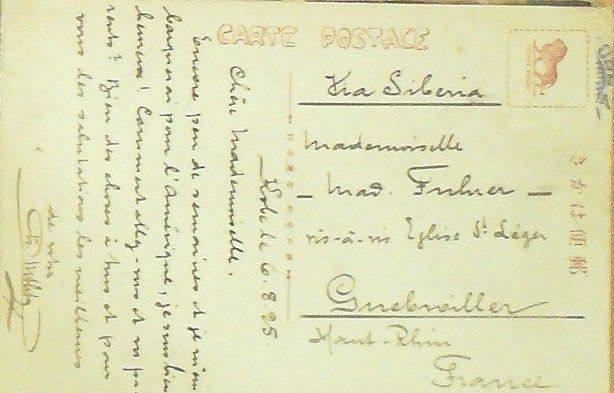 CARTE POSTALE
きかは便郵
Via Siberia
Mademoiselle
Mad. Fuhrer
vis-à-vis Eglise St Léger
Guebwiller
Haut-Rhin
France
Kobe le 6.8.25
Chère Mademoiselle.
Encore peu de semaines et je m'em
barquerai pour l'Amérique, je suis bien
heureux! Comment allez-vous et vos pa-
rents? Bien des choses à tous et pour
vous les salutations les meilleures
de votre